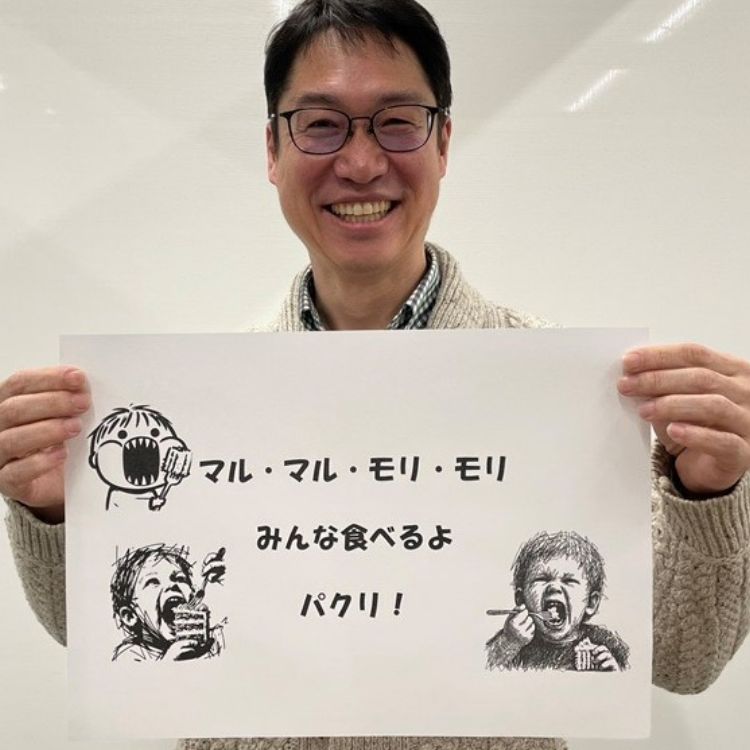 マル・マル・モリ・モリ
みんな食べるよ
パクリ！